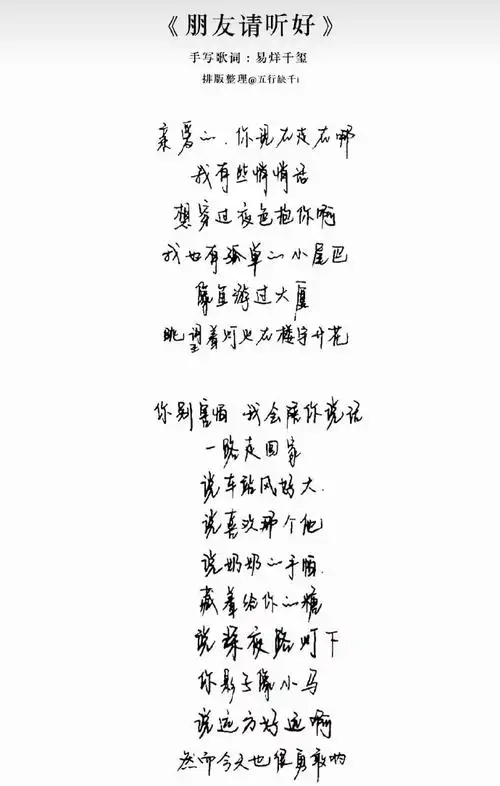 《朋友请听好》
手写歌词：易烊千玺
排版整理@五行缺千i
亲爱的、你说在走在哪
我有些悄悄话
想穿过夜色抱你啊
我也有孤单的小尾巴
像鱼游过大厦
眺望着灯火在楼宇开花
你别害怕 我会陪你说话
一路走回家
说车站风好大.
说喜欢那个他
说奶奶的手帕.
藏着给你的糖
说深夜路灯下
你影子像小马
说远方好远啊
然而今天也很勇敢哟